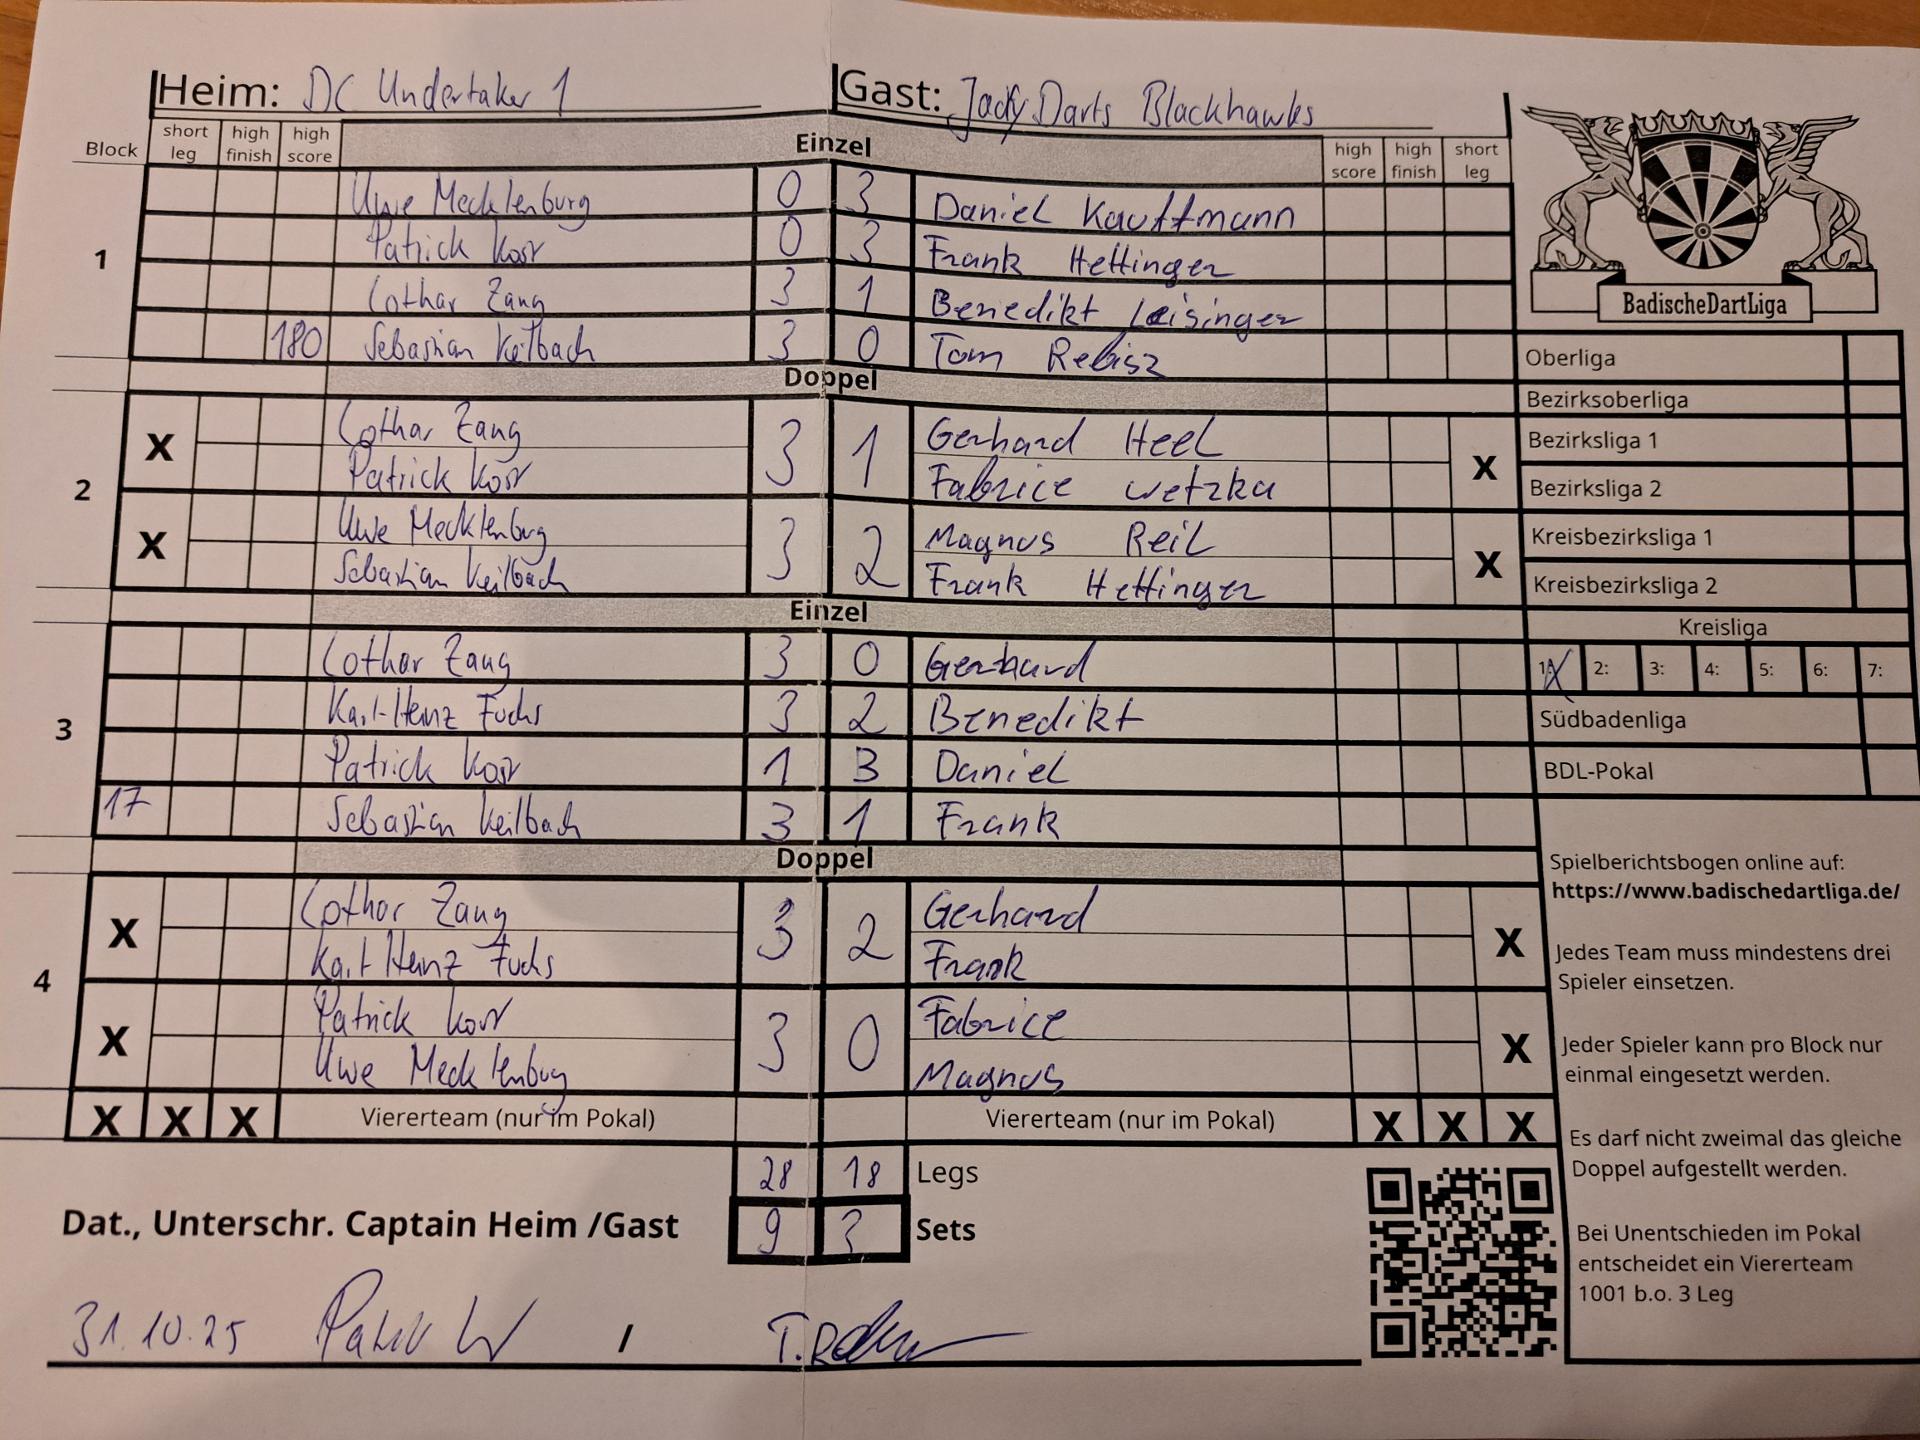 Heim: DC Undertaker 1 Gast: Jacky Darts Blackhawks
Block short leg high finish high score Einzel high score high finish short leg
1
Uwe Mecklenburg 0 3 Daniel Kauffmann
Patrick Korr 0 3 Frank Hettinger
Lothar Zang 3 1 Benedikt Leisinger
180 Sebastian Keilbach 3 0 Tom Rebisz
Doppel
2
X Lothar Zang 3 1 Gerhard Heel X
Patrick Korr Fabrice Wetzka
X Uwe Mecklenburg 3 2 Magnus Reil X
Sebastian Keilbach Frank Hettinger
Einzel
3
Lothar Zang 3 0 Gerhard
Karl-Heinz Fuchs 3 2 Benedikt
Patrick Korr 1 3 Daniel
17 Sebastian Keilbach 3 1 Frank
Doppel
4
X Lothar Zang 3 2 Gerhard X
Karl Heinz Fuchs Frank
X Patrick Korr 3 0 Fabrice X
Uwe Mecklenburg Magnus
X X X Viererteam (nur im Pokal) Viererteam (nur im Pokal) X X X
28 18 Legs
Dat., Unterschr. Captain Heim /Gast 9 3 Sets
31.10.25 /
BadischeDartLiga
Oberliga
Bezirksoberliga
Bezirksliga 1
Bezirksliga 2
Kreisbezirksliga 1
Kreisbezirksliga 2
Kreisliga
1: X 2: 3: 4: 5: 6: 7:
Südbadenliga
BDL-Pokal
Spielberichtsbogen online auf:
https://www.badischedartliga.de/
Jedes Team muss mindestens drei
Spieler einsetzen.
Jeder Spieler kann pro Block nur
einmal eingesetzt werden.
Es darf nicht zweimal das gleiche
Doppel aufgestellt werden.
Bei Unentschieden im Pokal
entscheidet ein Viererteam
1001 b.o. 3 Leg